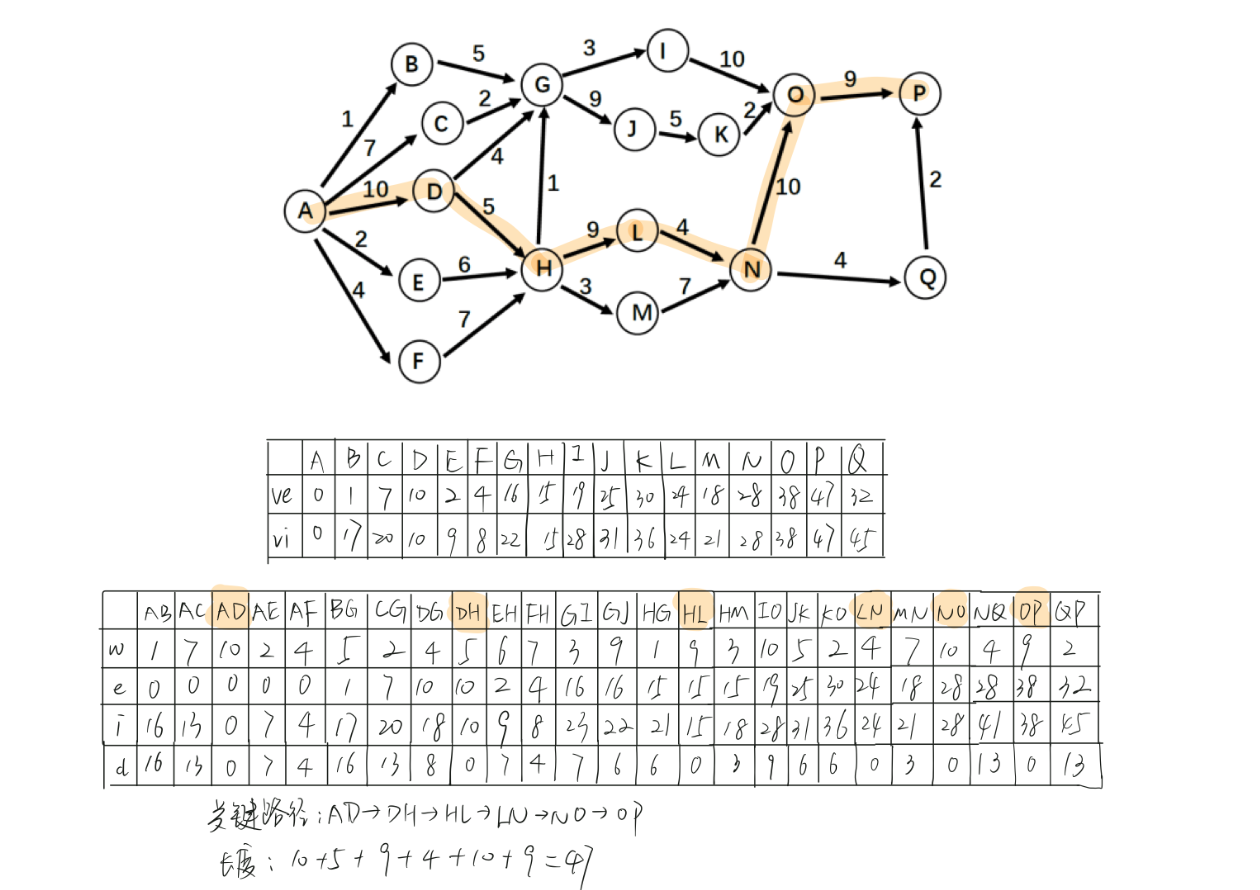 B 5 G 3 I 10 O 9 P
1 C 2 9 J 5 K 2
7 4
A 10 D 5 1 9 L 4 10 2
2 E 6 H 3 M 7 N 4 Q
4 F 7
A B C D E F G H I J K L M N O P Q
ve 0 1 7 10 2 4 16 15 19 25 30 24 18 28 38 47 32
vi 0 17 20 10 9 8 22 15 28 31 36 24 21 28 38 47 45
AB AC AD AE AF BG CG DG DH EH FH GI GJ HG HL HM IO JK KO LN MN NO NQ OP QP
w 1 7 10 2 4 5 2 4 5 6 7 3 9 1 9 3 10 5 2 4 7 10 4 9 2
e 0 0 0 0 0 1 7 10 10 2 4 16 16 15 15 15 19 25 30 24 18 28 28 38 32
i 16 13 0 7 4 17 20 18 10 9 8 23 22 21 15 18 28 31 36 24 21 28 41 38 45
d 16 13 0 7 4 16 13 8 0 7 4 7 6 6 0 3 9 6 6 0 3 0 13 0 13
关键路径:AD→DH→HL→LN→NO→OP
长度:10+5+9+4+10+9=47